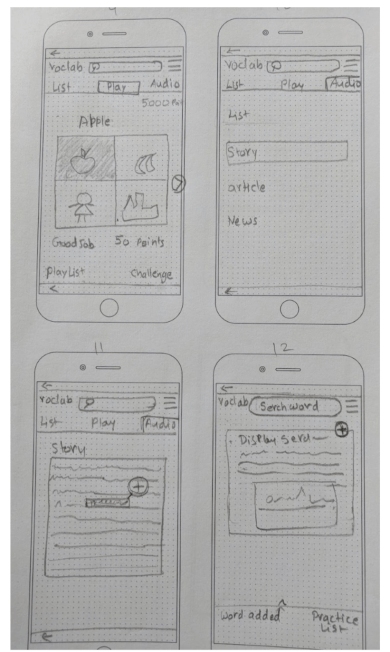 9
10
voclab
List Play Audio
5000 Pts
Apple
Good Job 50 Points
Play List Challenge
voclab
List Play Audio
List
Story
article
News
11
12
voclab
List Play Audio
Story
voclab Serch word
Display Serch
word added Practice
List